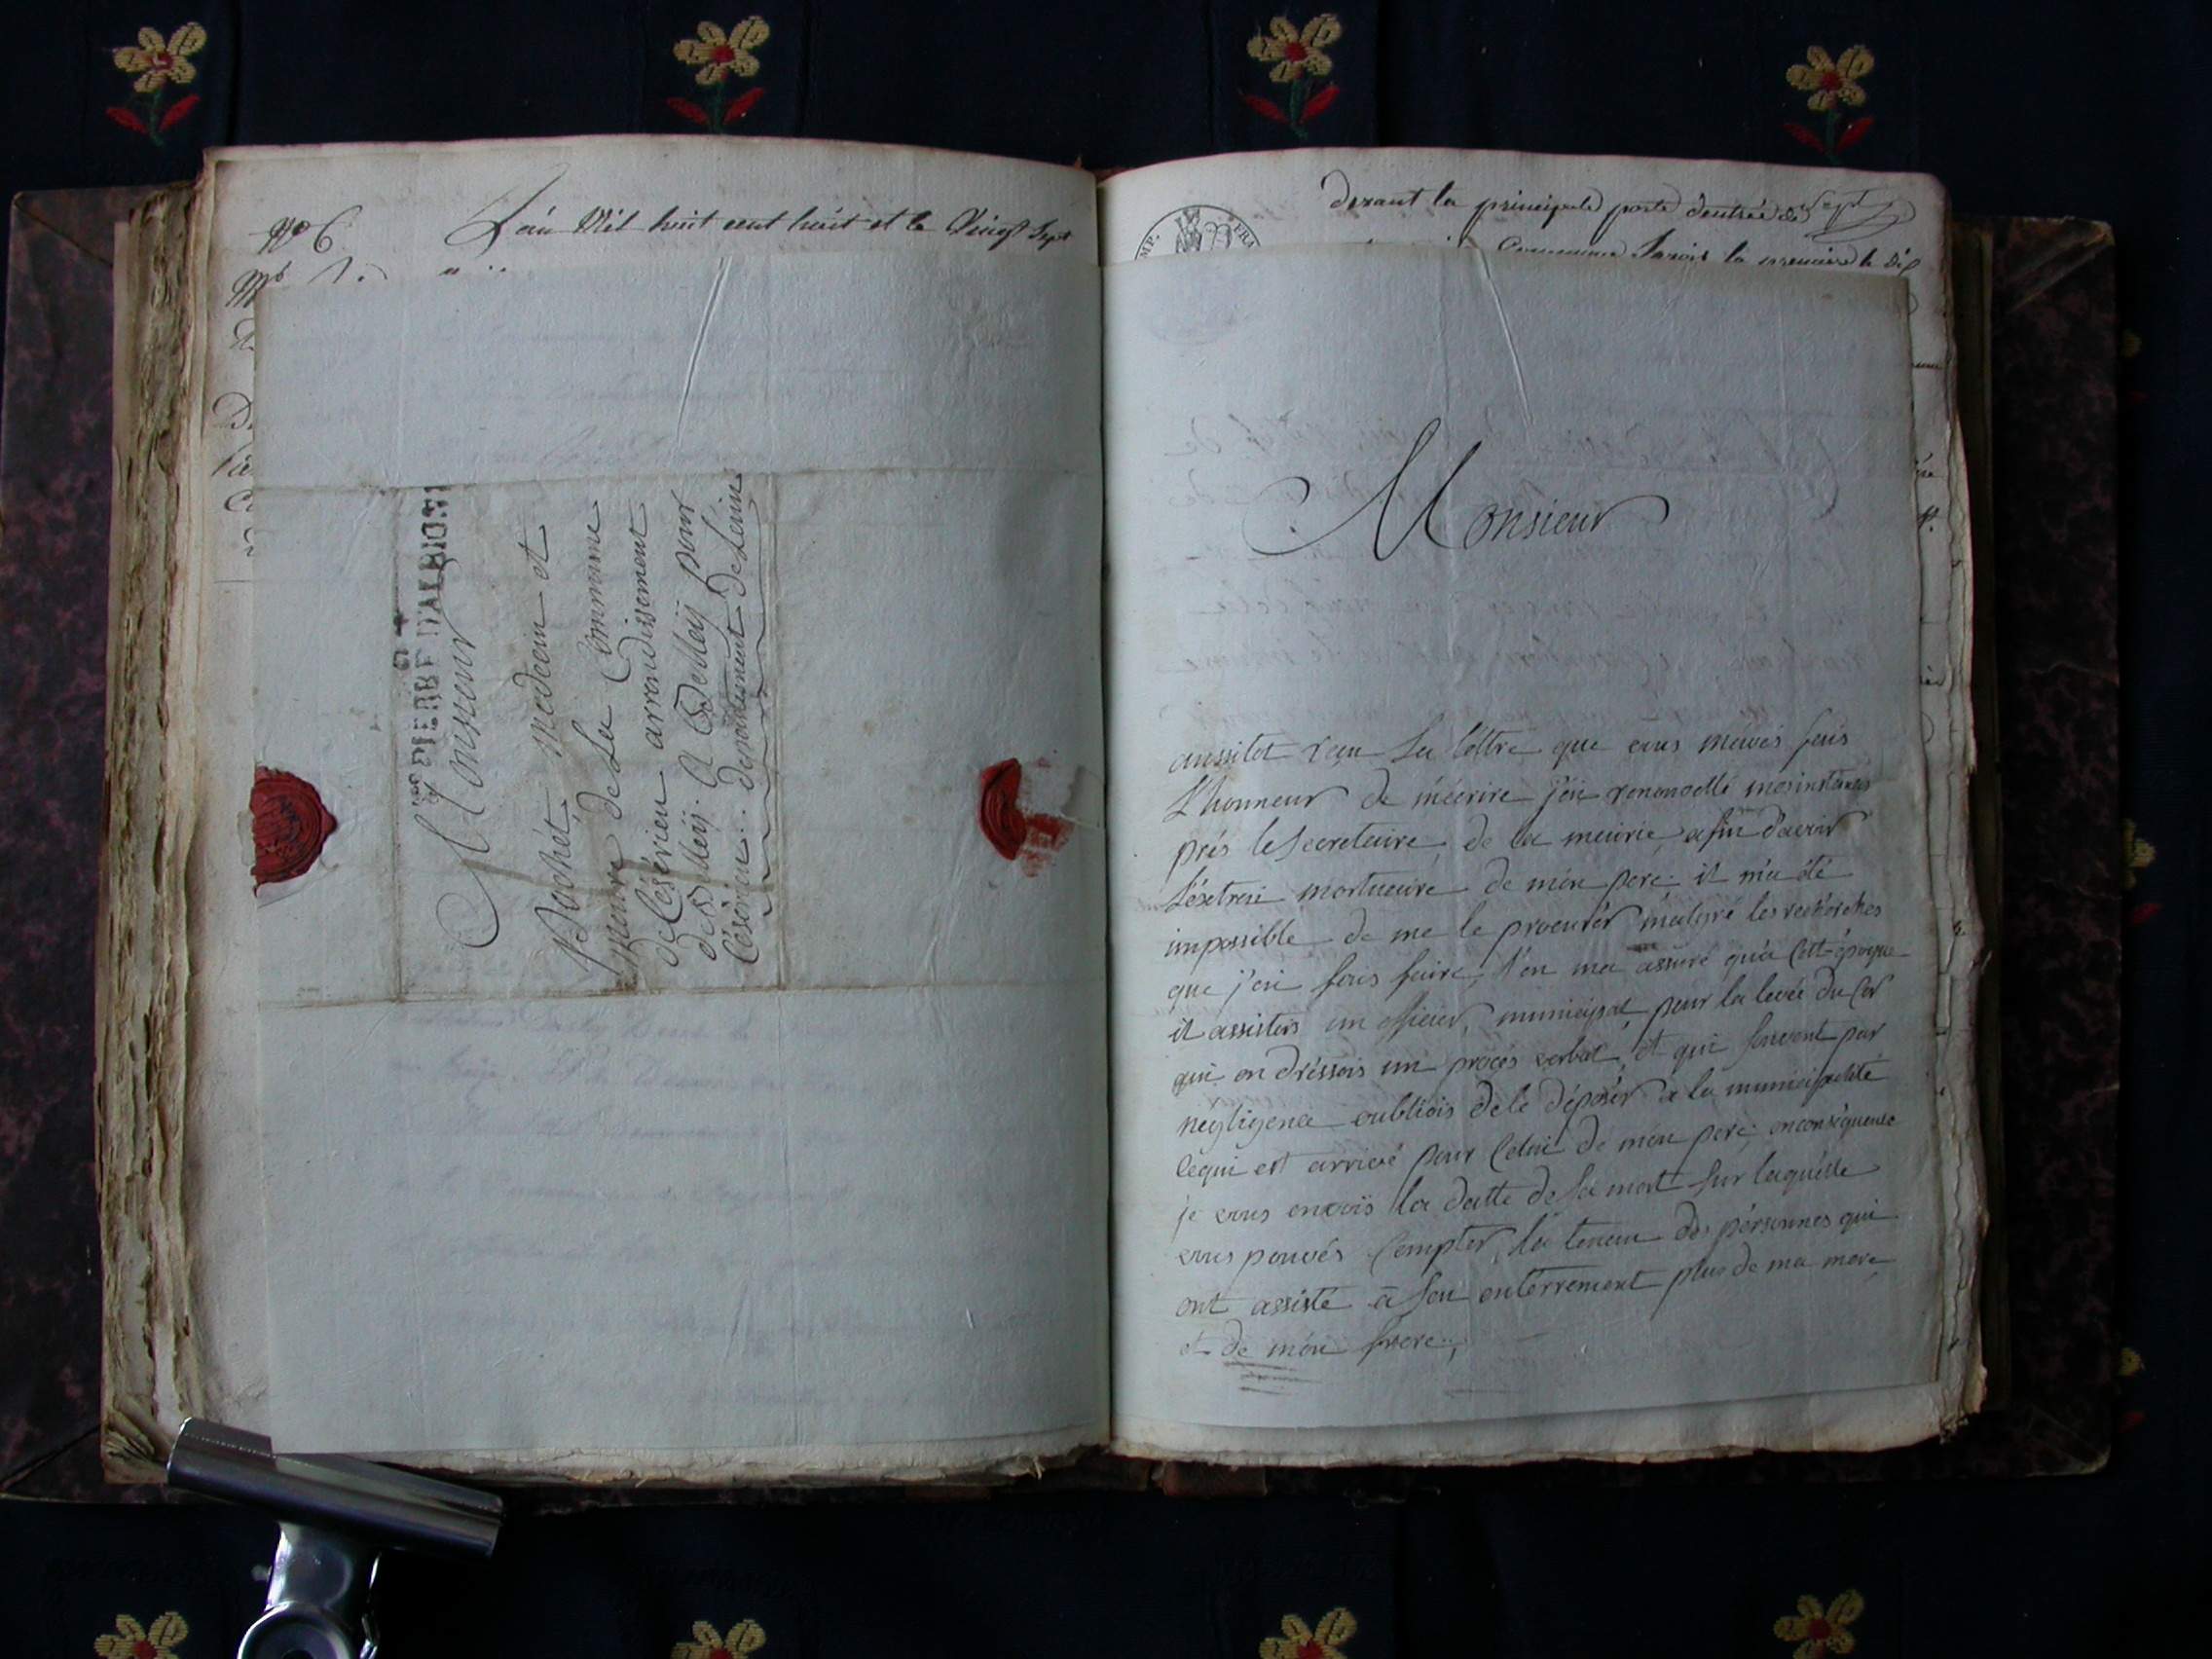 No 6
L'an Mil huit cent huit et le Vingt Sept
84
ST PIERRE D'ALBIGNY
Monsieur
Bochet, medecin et
maire de la Commune
de Céserieu arrondissement
de Belleij. a Belleij pour
Céserieu. departement de Lain
devant la principale porte dentrée de
Commune Savoir la premiere le dix
Monsieur
aussitot reçu la lettre que vous mavés fais
L'honneur de méecrire j'ai renouvellé mes instances
près le Secretaire de la mairie afin d'avoir
L'éxtrai mortuaire de mon pere il ma été
impossible de me le procurér malgré les recherches
que j'ai fais faire, l'on ma assuré qu'a Cett époque
il assistois un officier municipal pour la levée du Cor
qui en dréssois un procés verbal, et qui souvent par
negligence oubliois de le dépôsér a la municipalité
ce qui est arrivé pour Celui de mon pere; en conséquence
je vous envois la datte de sa mort sur laquélle
vous pouvés Compter, la teneur des pérsonnes qui
ont assisté a son entérrement plus de ma mere
et de mon frere,